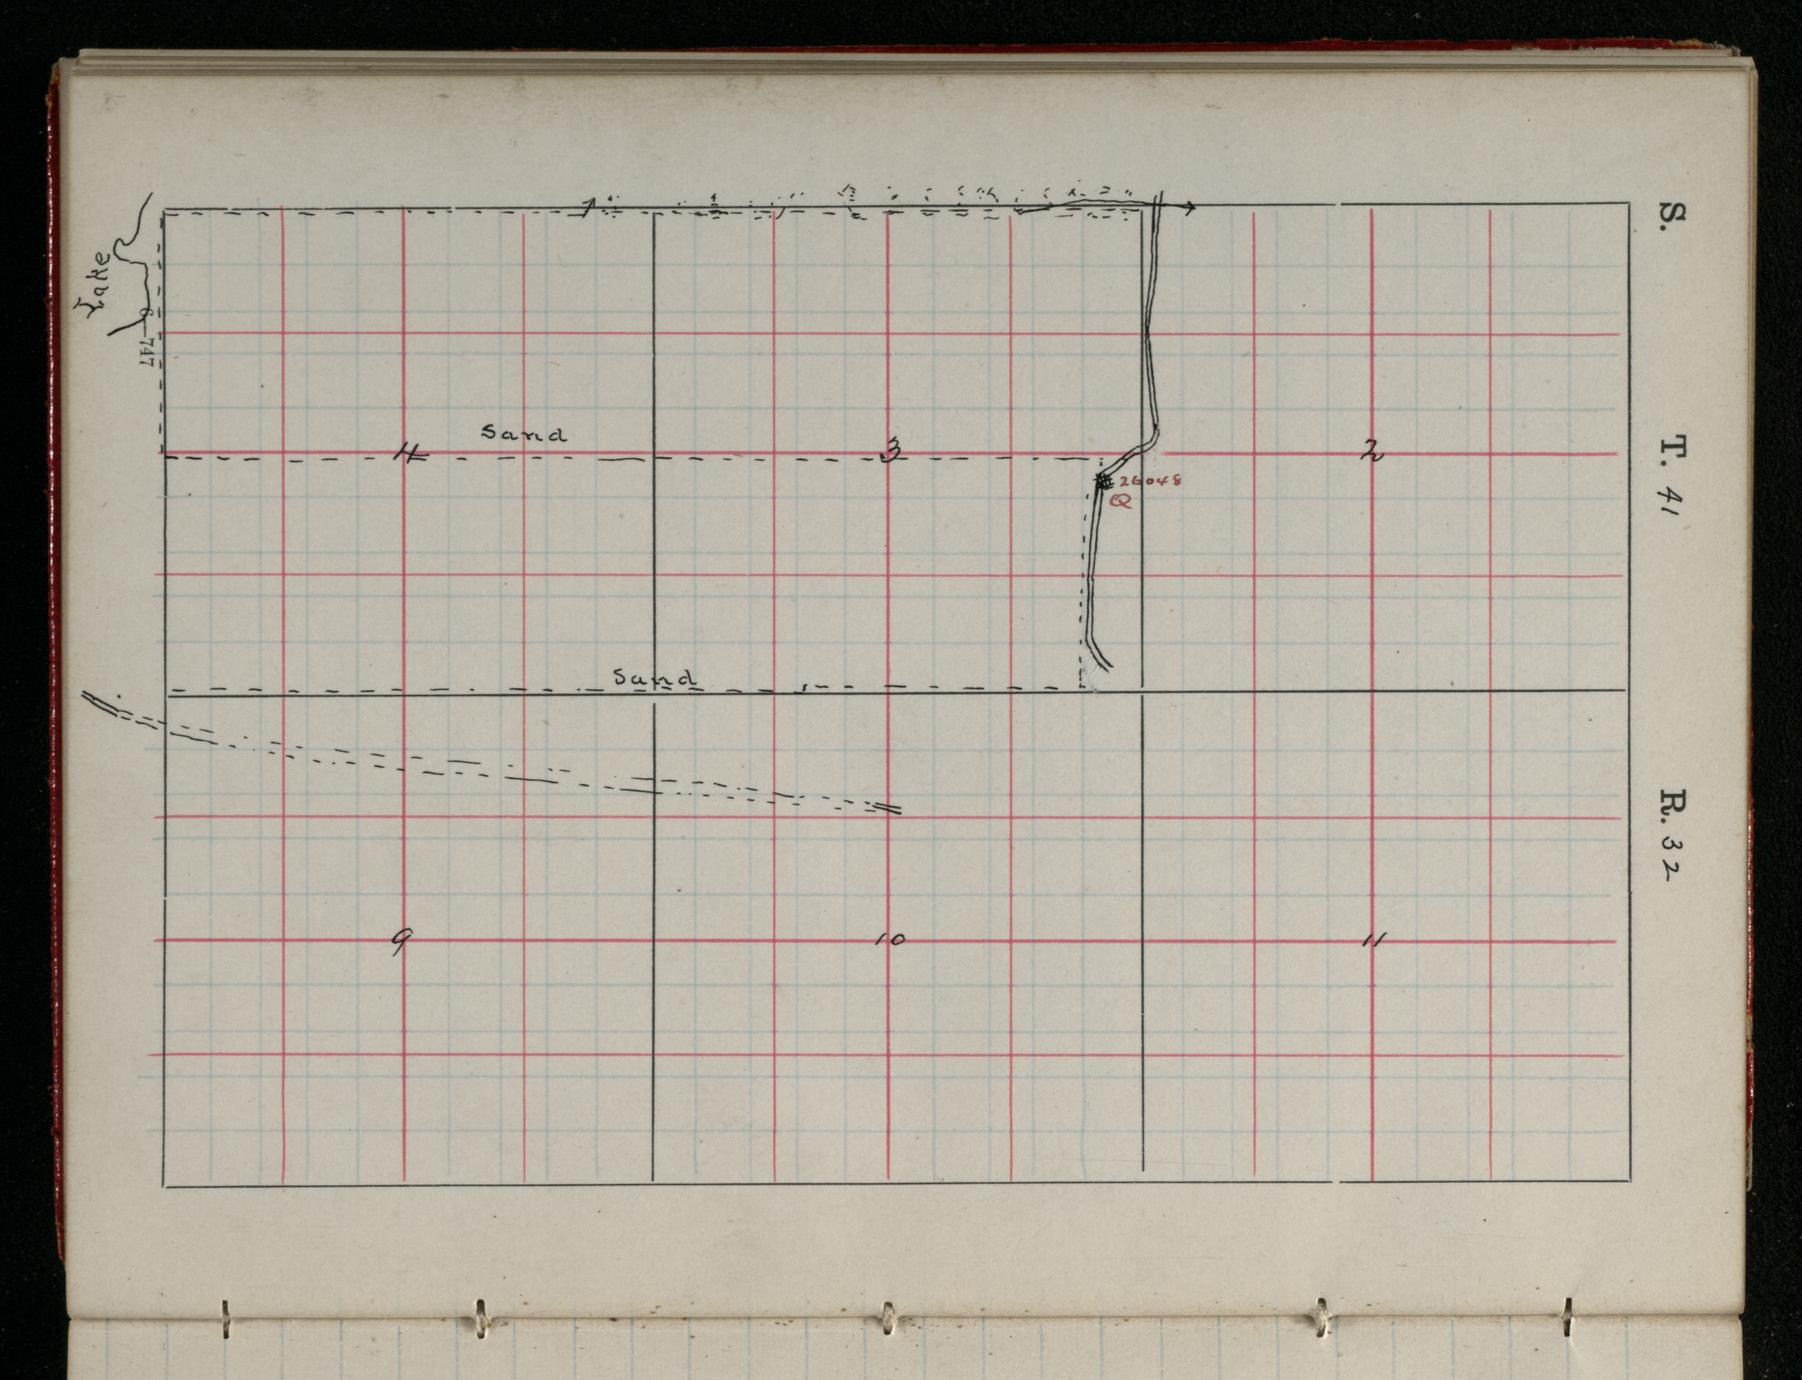 S. T. 41 R. 32
Lake
9—747
Sand
4 3 2
26048
Q
Sand
9 10 11